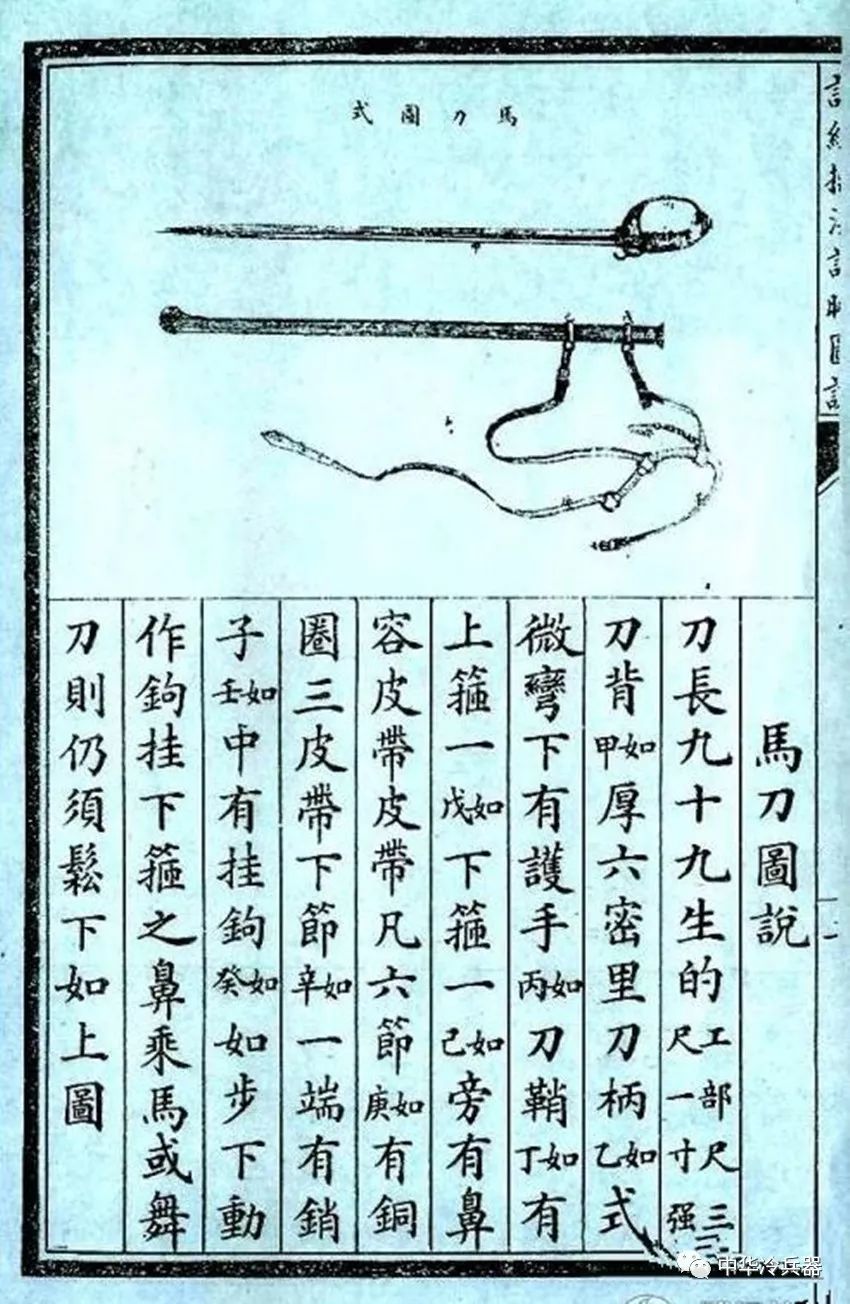 馬刀圖式
馬刀圖說
刀長九十九生的工部尺三尺一寸强
刀背如甲厚六密里刀柄如乙式
微彎下有護手如丙刀鞘如丁有
上箍一如戊下箍一如己旁有鼻
容皮帶皮帶凡六節如庚有銅
圈三皮帶下節如辛一端有銷
子如壬中有挂鉤如癸如步下動
作鉤挂下箍之鼻乘馬或舞
刀則仍須鬆下如上圖
中华冷兵器